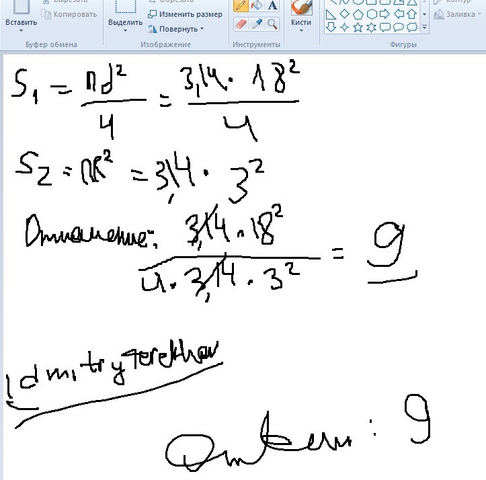 Вставить
Вырезать
Копировать
Буфер обмена
Выделить
Обрезать
Изменить размер
Повернуть
Изображение
A
Инструменты
Кисти
Контур
Заливка
Фигуры
S₁ = πd²/4 = 3,14 · 18²/4
S₂ = πR² = 3,14 · 3²
Отношение: 3,14 · 18²/4 · 3,14 · 3² = 9
dmitryterekhov
Ответ: 9